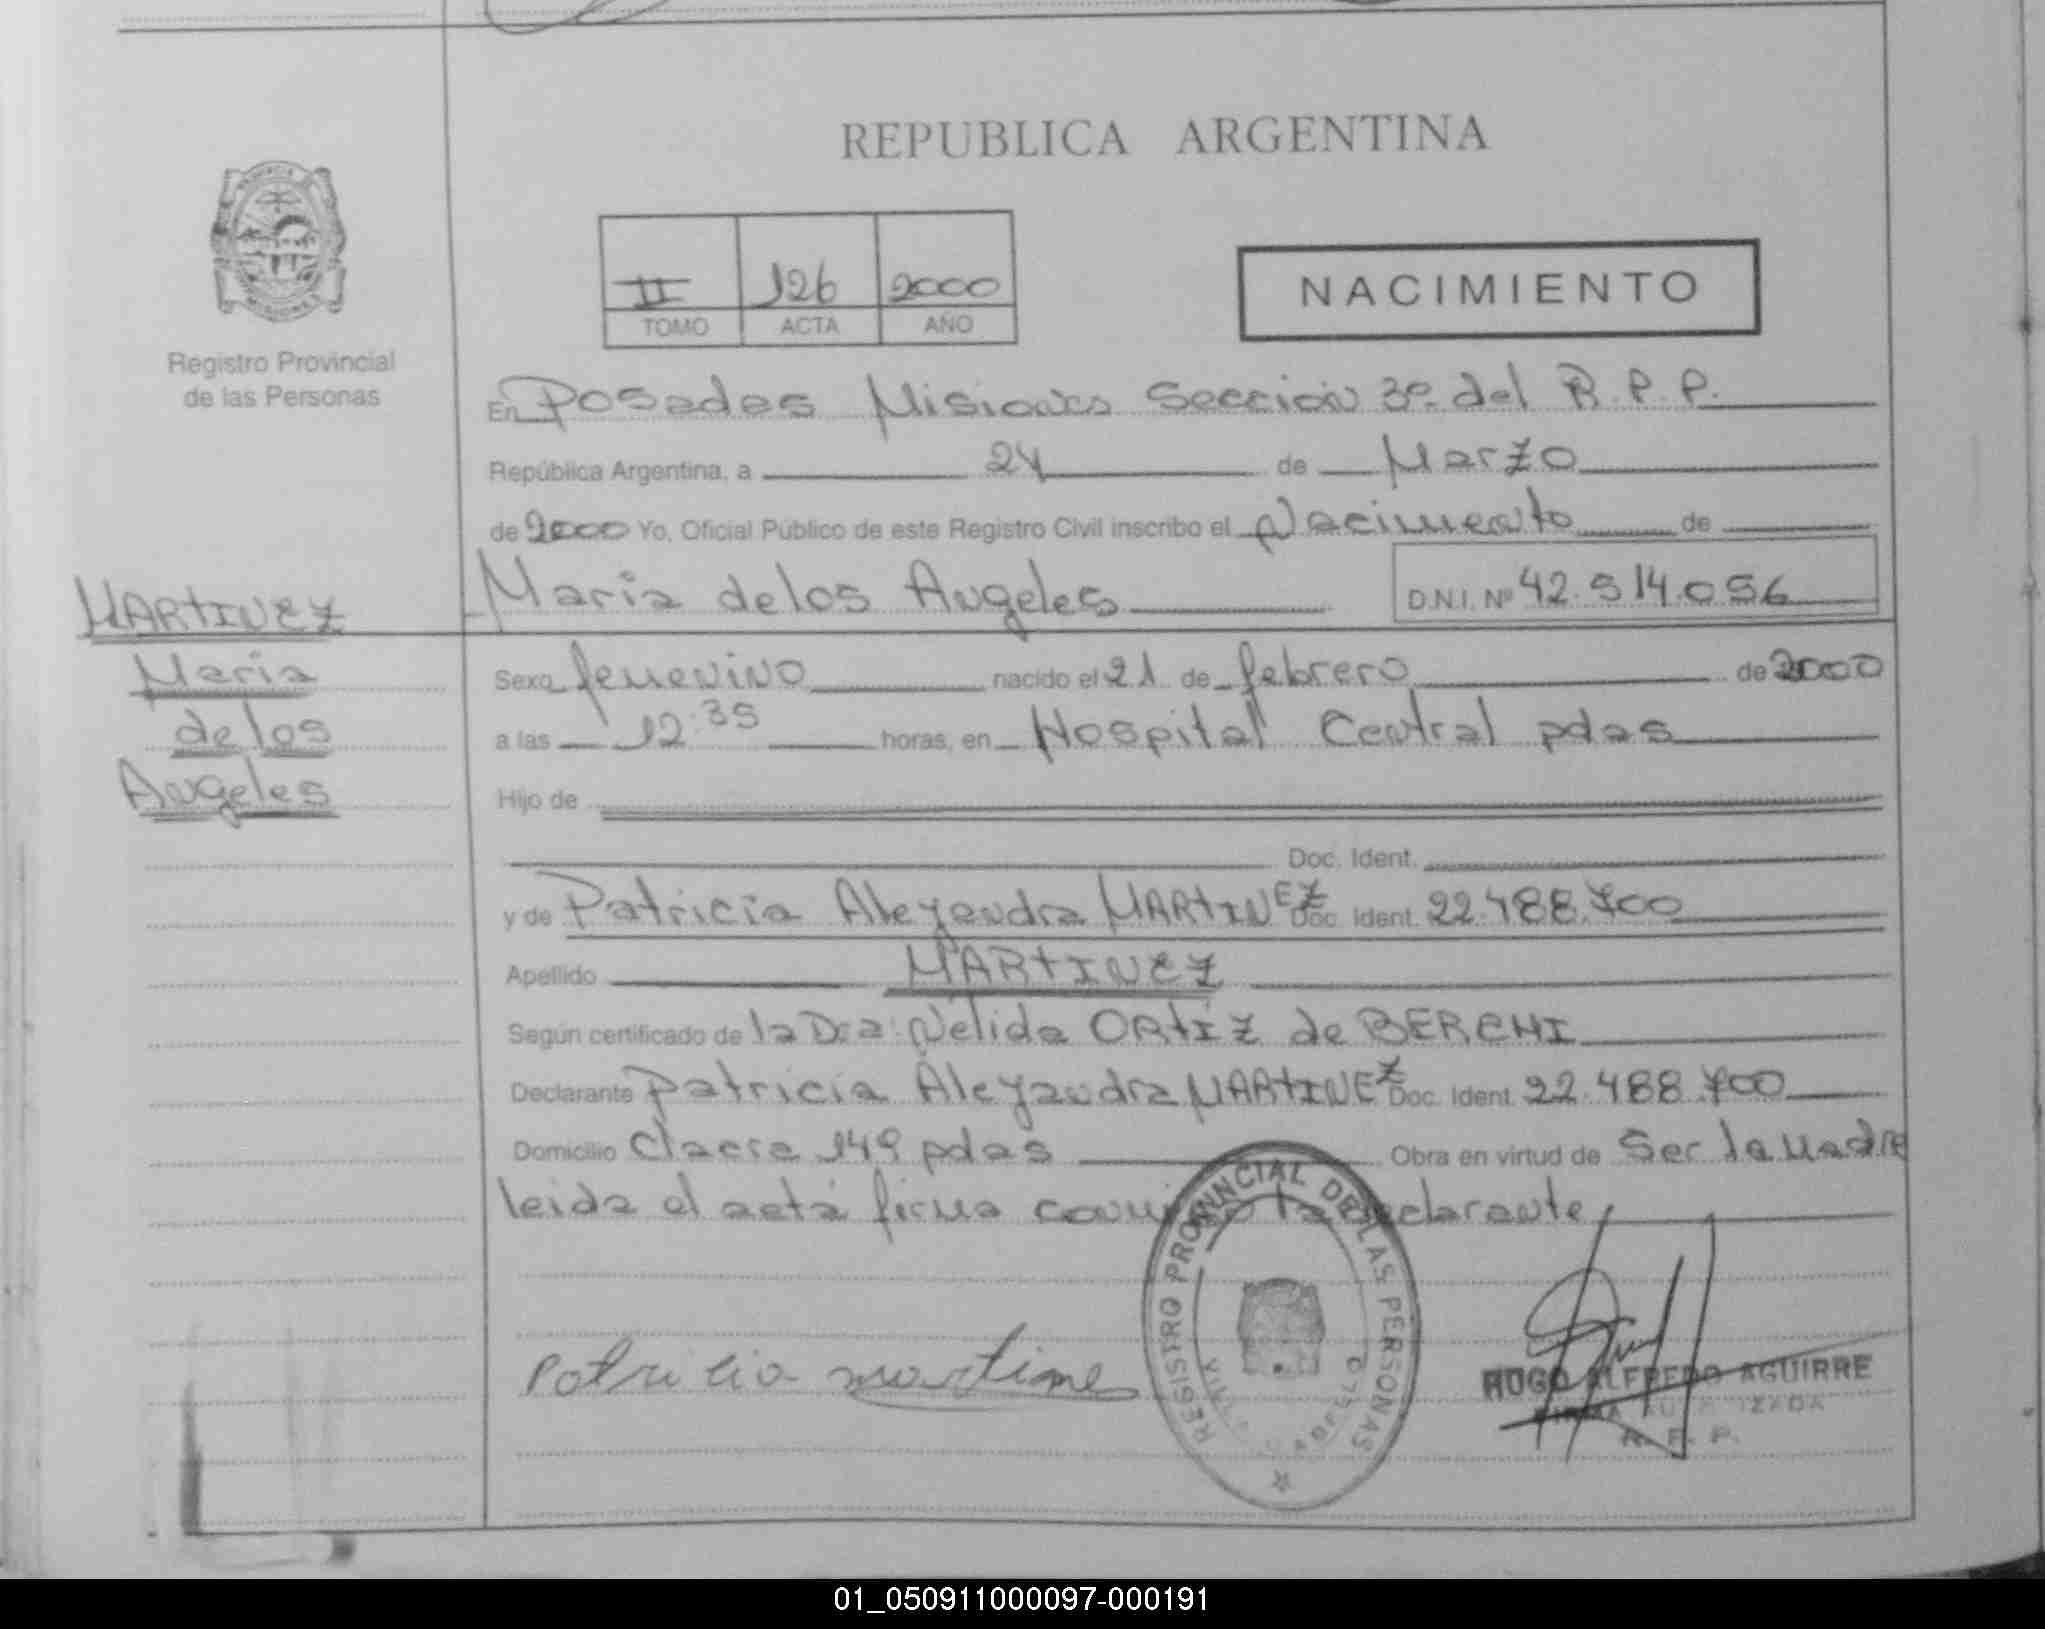 REPUBLICA ARGENTINA
II 126 2000
TOMO ACTA AÑO
NACIMIENTO
Registro Provincial
de las Personas
En Posadas Misiones Sección 3º del R.P.P.
República Argentina, a 24 de Marzo
de 2000 Yo, Oficial Público de este Registro Civil inscribo el Nacimiento de
Maria de los Angeles D.N.I. Nº 42.514.056
MARTINEZ
Maria
de los
Angeles
Sexo femenino nacido el 21 de febrero de 2000
a las 12:35 horas, en Hospital Central pdas
Hijo de
Doc. Ident.
y de Patricia Aleyandra MARTINEZ Doc. Ident. 22.488.700
Apellido MARTINEZ
Según certificado de la Dra: Nelida ORTIZ de BERCHI
Declarante Patricia Aleyandra MARTINEZ Doc. Ident. 22.488.700
Domicilio Chacra 149 pdas Obra en virtud de Ser la Madre
leida el acta firma conmigo la declarante
REGISTRO PROVINCIAL DE LAS PERSONAS
Patricia martinez
HUGO ALFREDO AGUIRRE
FIRMA AUTORIZADA
01_050911000097-000191